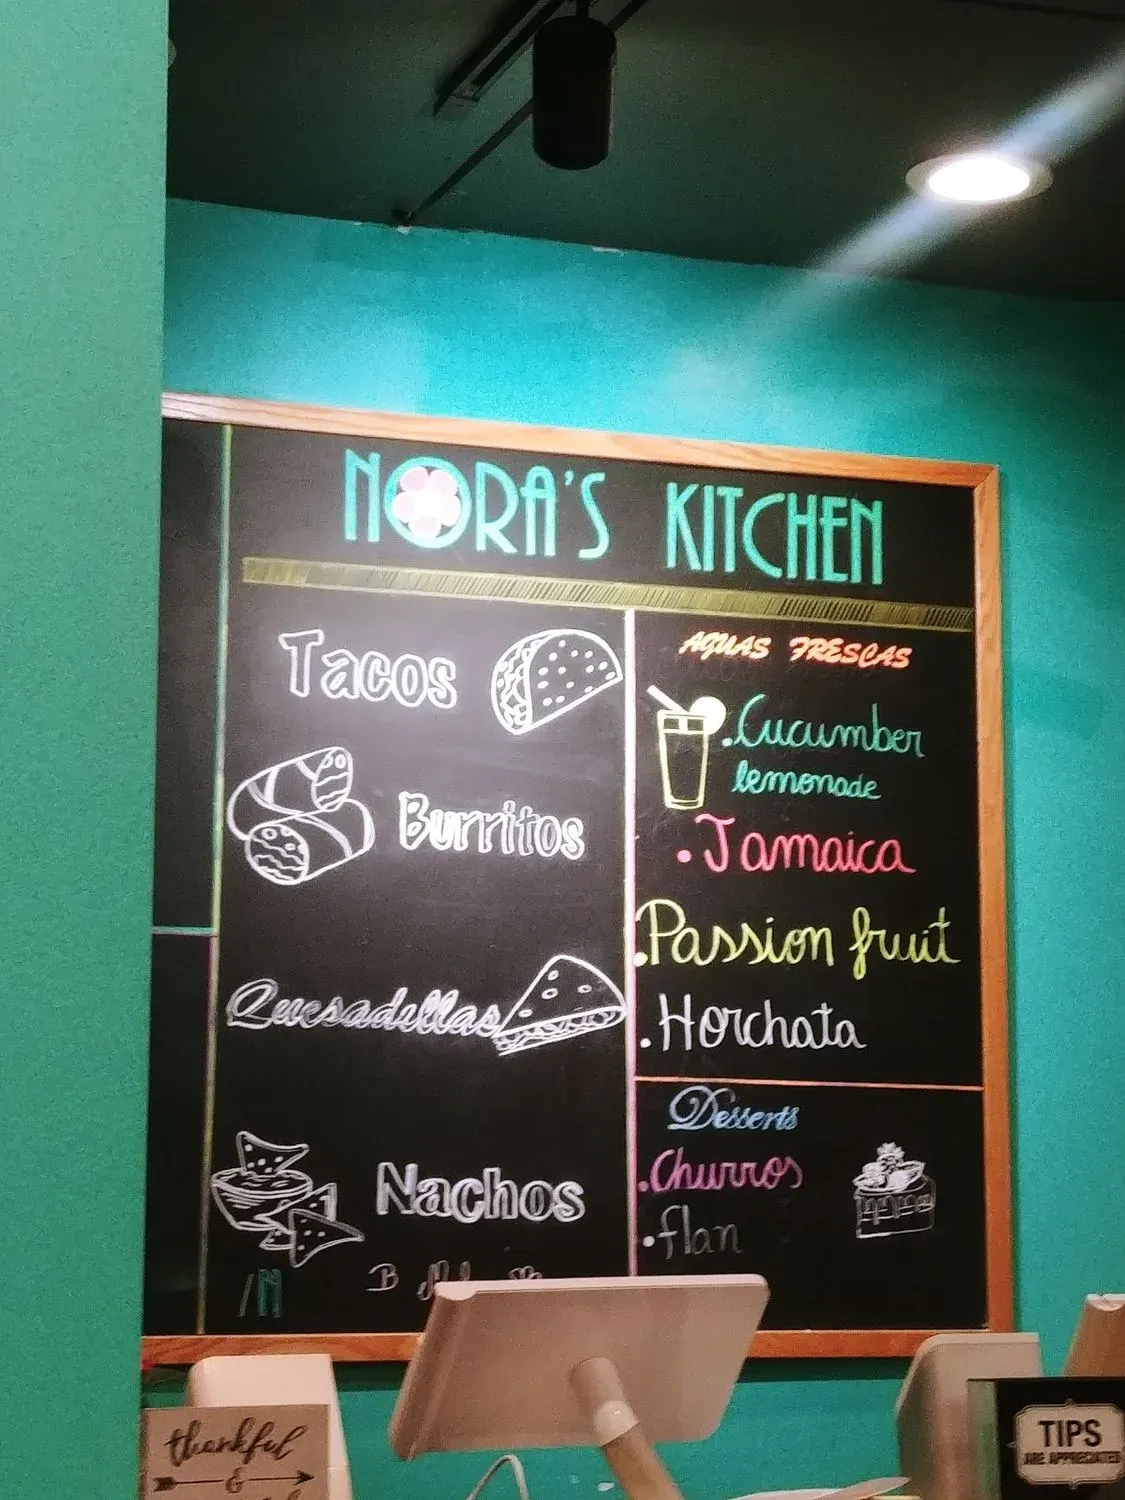 NORA'S KITCHEN
Tacos
Burritos
Quesadillas
Nachos
AGUAS FRESCAS
.Cucumber
lemonade
.Jamaica
.Passion fruit
.Horchata
Desserts
.Churros
.flan
thankful
&
TIPS
ARE APPRECIATED